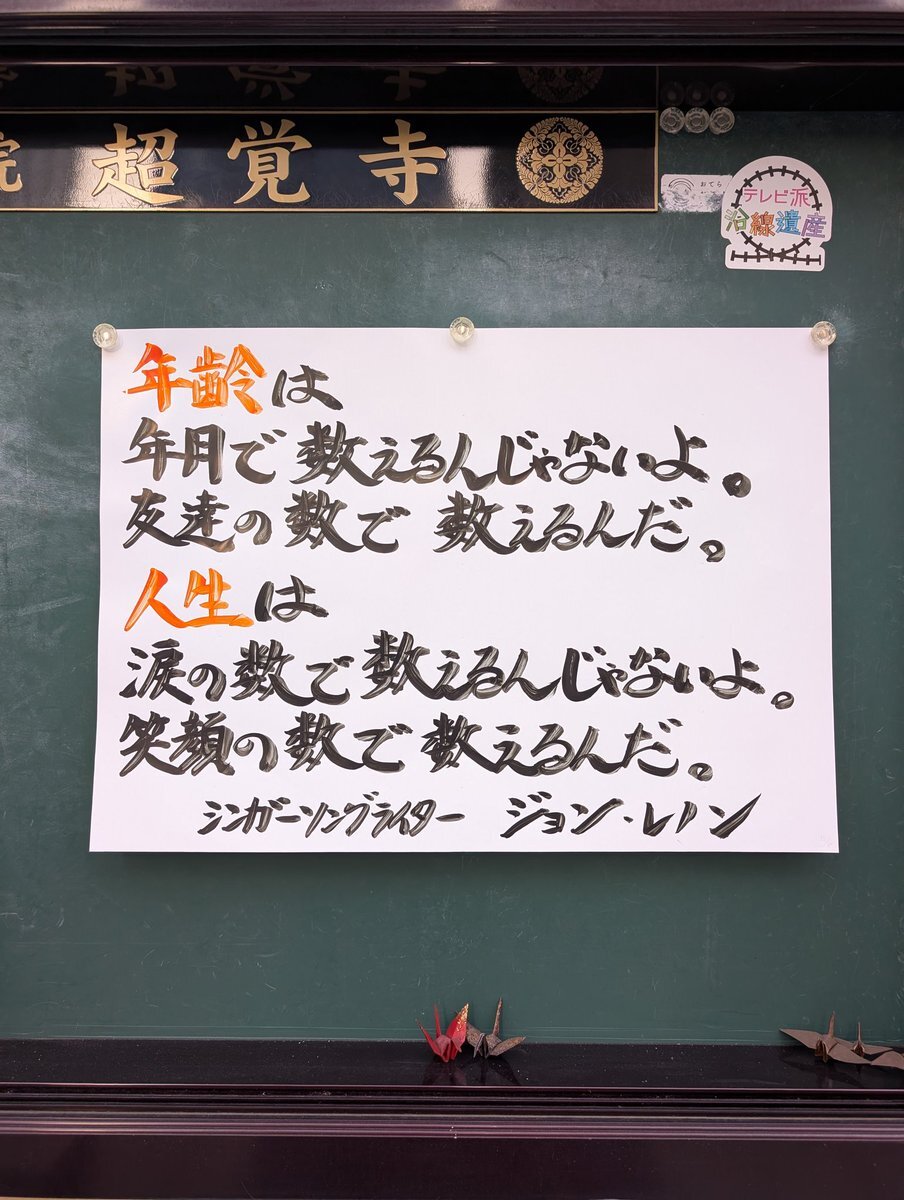 院 超覚寺
おてら
テレビ派
沿線遺産
年齢は
年月で数えるんじゃないよ。
友達の数で 数えるんだ。
人生は
涙の数で数えるんじゃないよ。
笑顔の数で 数えるんだ。
シンガーソングライター ジョン・レノン